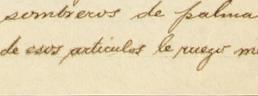 sombreros de palma
de esos articulos le ruego m